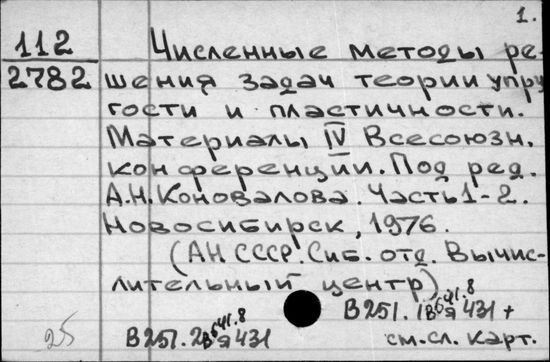 1.
112
2782
Численные методы ре-
шения задач теории упру
гости и пластичности.
Материалы IV Всесоюзн.
конференции. Под ред.
А.Н. Коновалова. Часть 1-2.
Новосибирск, 1976.
(АН СССР. Сиб. отд. Вычис-
лительный центр)
В 251. 1 641.8
В Я 431 +
В 251. 2 641.8
В Я 431
см. сл. карт.
25